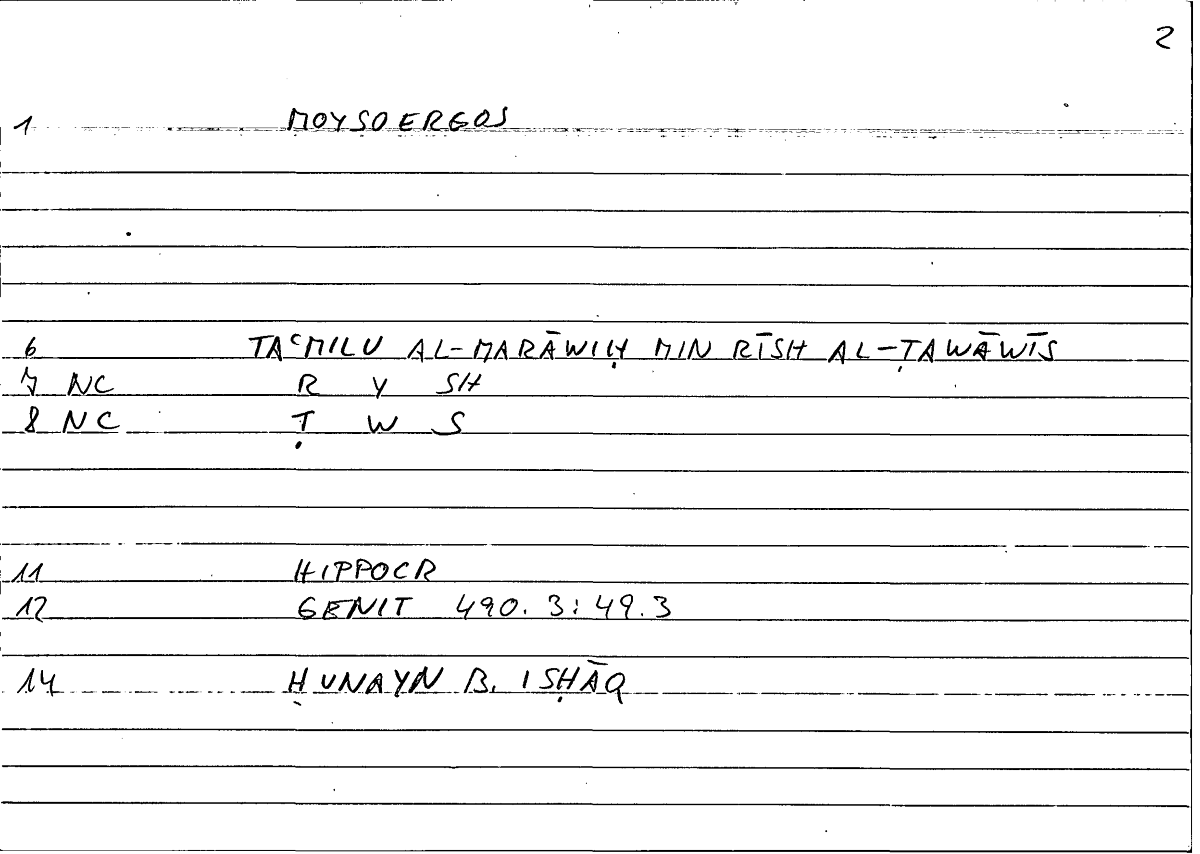 2
1 MOYSOERGOS
6 TAᶜMILU AL-MARĀWIḤ MIN RĪSH AL-ṬAWĀWĪS
7 NC R Y SH
8 NC Ṭ W S
11 HIPPOCR
12 GENIT 490.3:49.3
14 ḤUNAYN B. ISḤĀQ